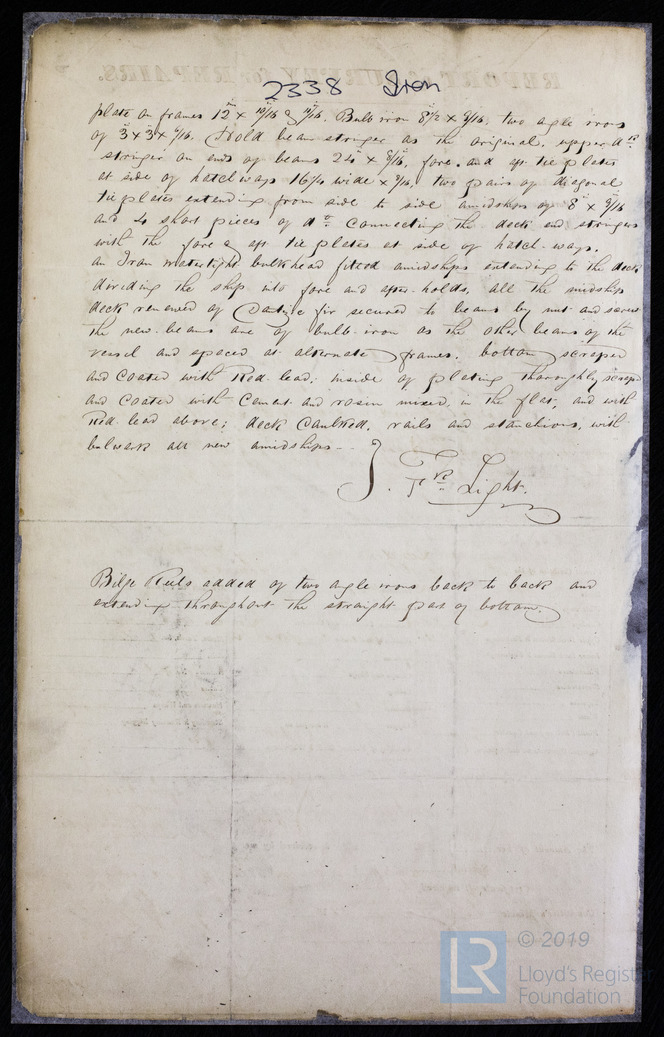 REPORT of SURVEY for REPAIRS.
2338 Iron
plate on frames 12" x 10/16 & 11/16. Bulb iron 8 1/2 x 9/16, two angle irons
of 3" x 3" x 6/16. Hold beam stringer as the original, upper do
stringer on ends of beams 24" x 8/16, fore and aft tie plates
at side of hatchways 16 1/4 wide x 9/16, two pairs of diagonal
tie plates extending from side to side amidships of 8" x 9/16
and 4 short pieces of do connecting the deck end stringers
with the fore & aft tie plates at side of hatch-ways.
an Iron watertight bulkhead fitted amidships extending to the deck
dividing the ship into fore and after-holds, all the midships
deck renewed of fir secured to beams by nut and screw
the new beams are of bulb-iron as the other beams of the
vessel and spaced at alternate frames. bottom scraped
and coated with Red lead; inside of plating thoroughly scraped
and coated with Cement and rosin mixed, in the flat, and with
Red lead above; deck Caulked. rails and stanchions, with
bulwark all new amidships--
J. Tr Light.
Bilge Keels added of two angle irons back to back and
extending throughout the straight part of bottom.
LR © 2019
Lloyd's Register
Foundation